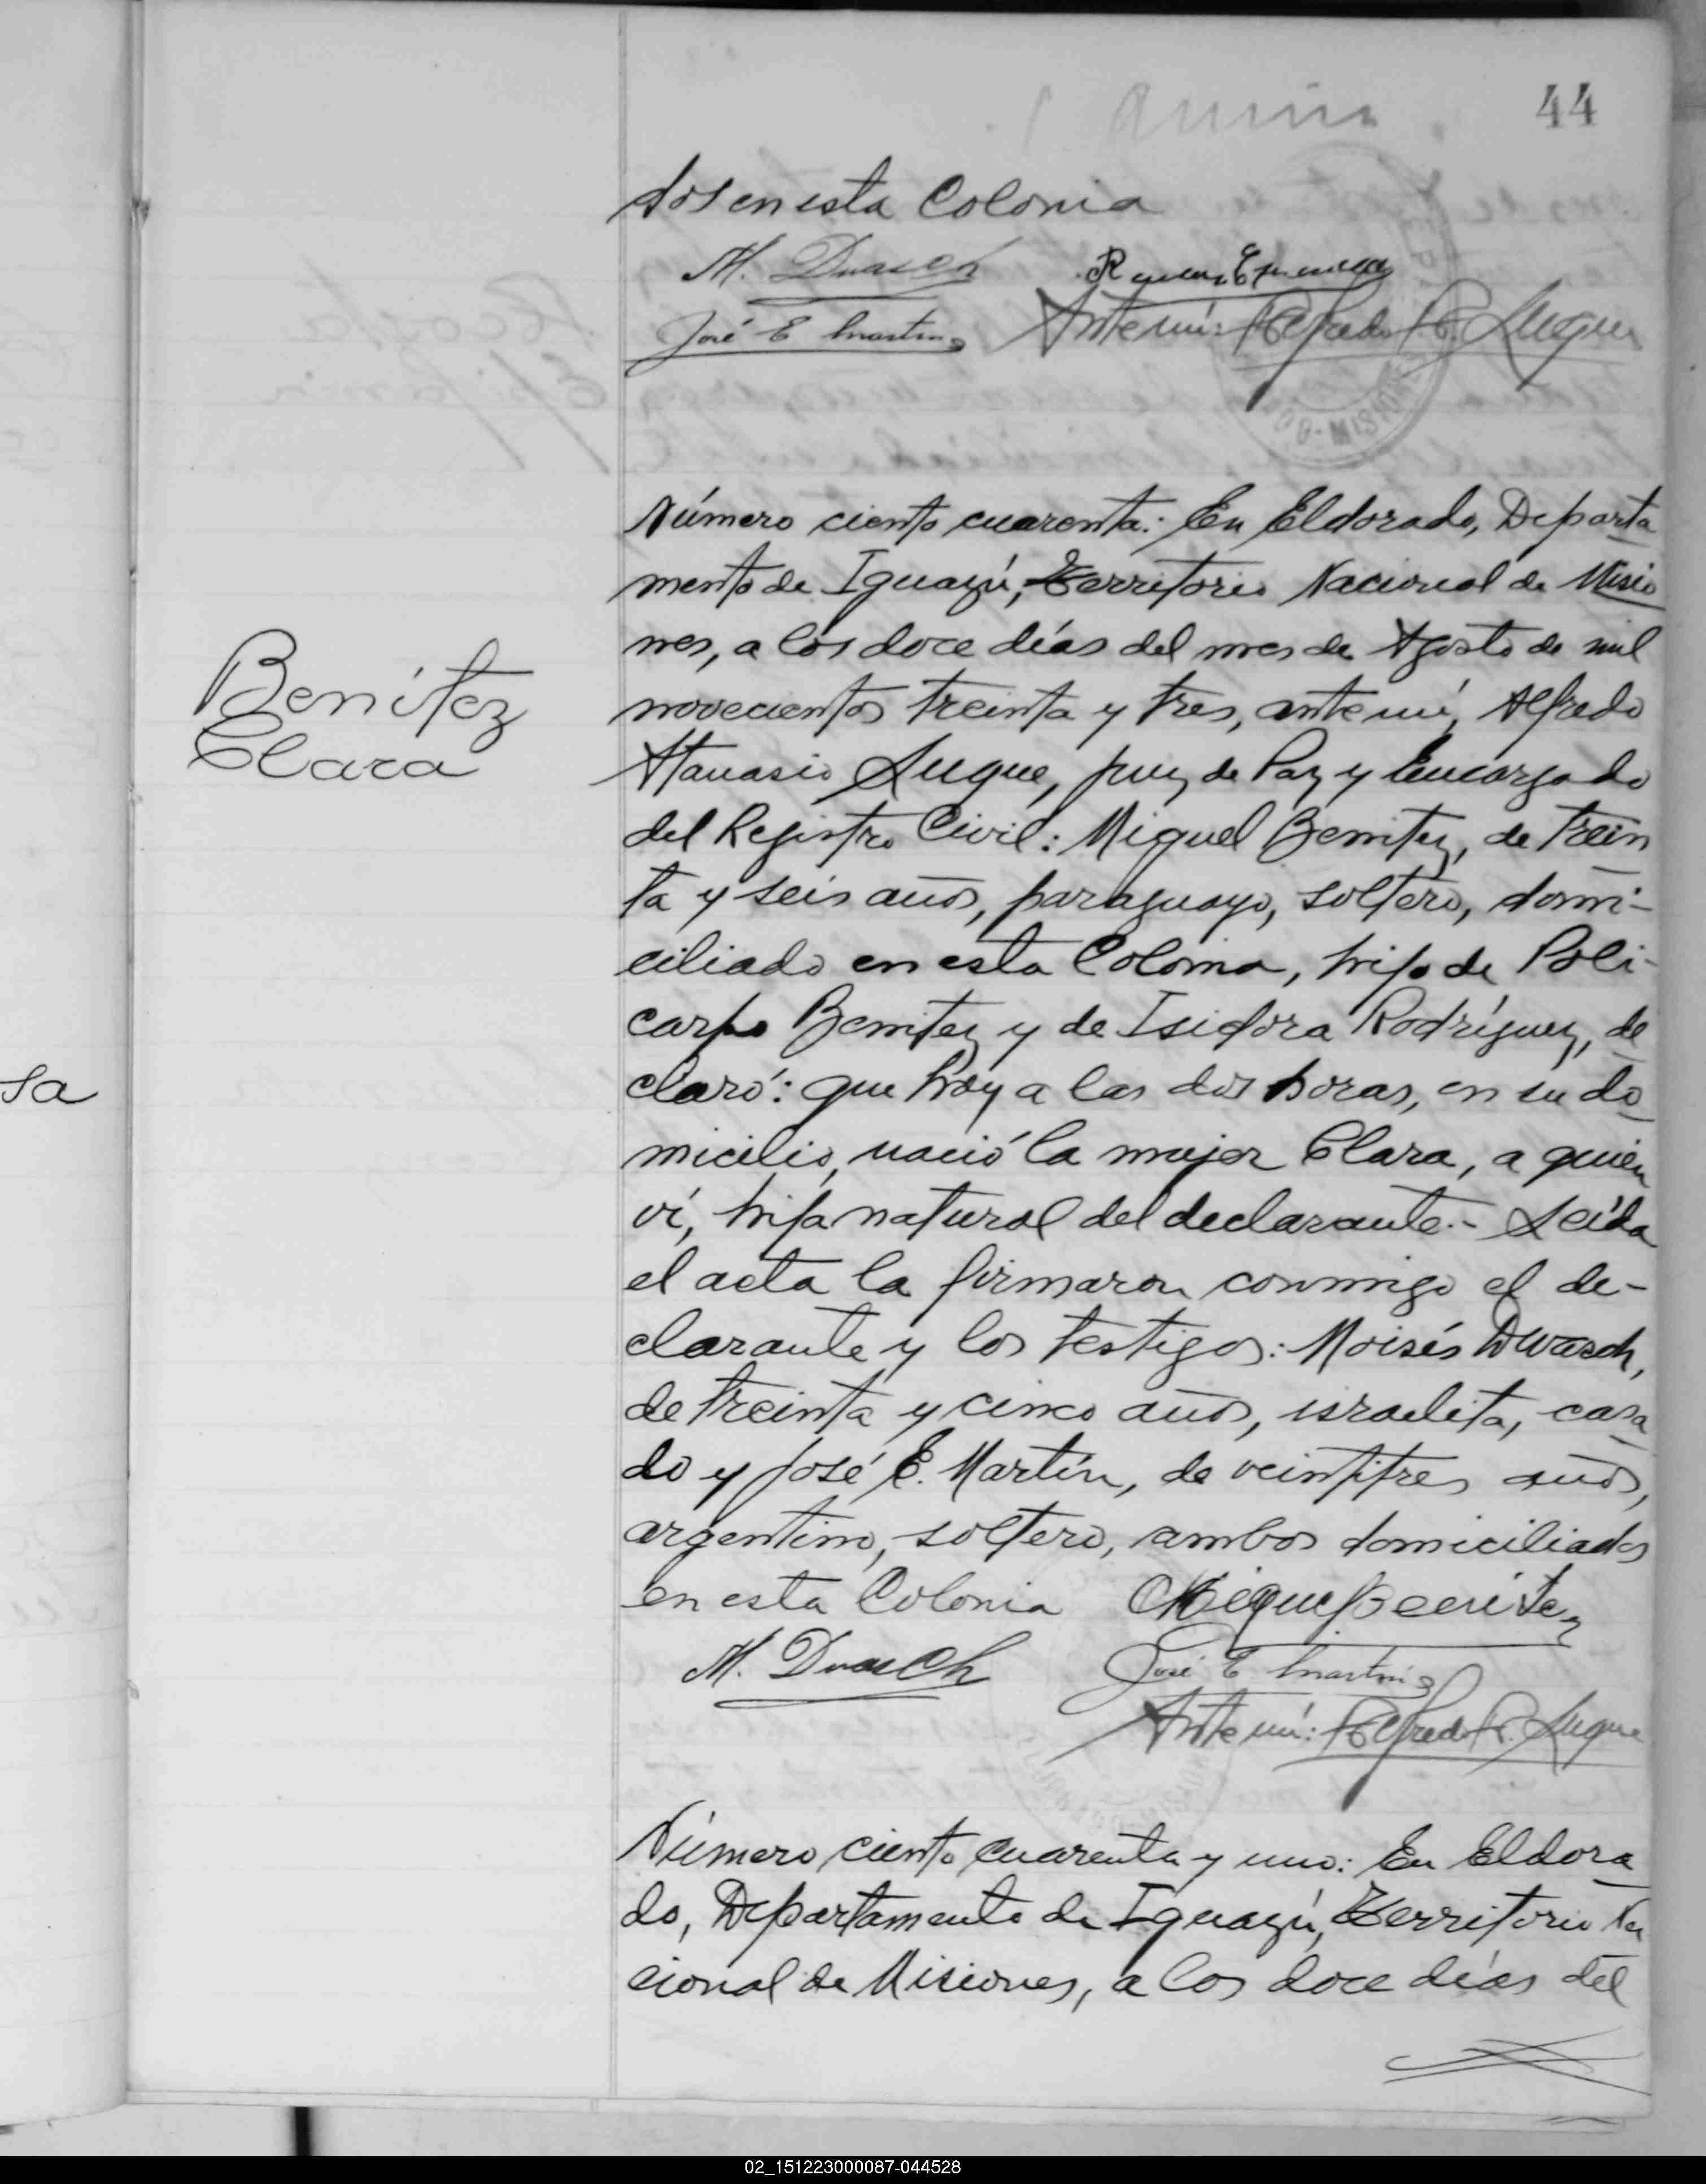 44
dos en esta Colonia
M. Dwasch
José E Martin Antemí: Alfredo A. Luque
Número ciento cuarenta: En Eldorado, Departa
mento de Iguazú, Territorio Nacional de Misio
nes, a los doce días del mes de Agosto de mil
novecientos treinta y tres, ante mí, Alfredo
Atanasio Luque, Juez de Paz y Encargado
del Registro Civil: Miguel Benitez, de trein
ta y seis años, paraguayo, soltero, domi-
ciliado en esta Colonia, hijo de Poli-
carpo Benitez y de Isidora Rodríguez, de
claró: que hoy a las dos horas, en su do
micilio, nació la mujer Clara, a quien
ví, hija natural del declarante.- Leída
el acta la firmaron conmigo el de-
clarante y los testigos: Moisés Dwasch,
de treinta y cinco años, israelita, casa
do y José E. Martín, de veintitres años,
argentino, soltero, ambos domiciliados
en esta Colonia Miguel Benitez
M. Dwasch José E Martin
Ante mí: Alfredo A. Luque
Benítez
Clara
sa
Número ciento cuarenta y uno: En Eldora
do, Departamento de Iguazú, Territorio Na
cional de Misiones, a los doce días del
02_151223000087-044528